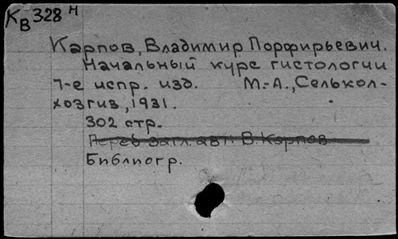 КВ 328 Н
Карпов, Владимир Порфирьевич.
Начальный курс гистологии
7-е испр. изд. М.-Л., Селькол-
хозгиз, 1931.
302 стр.
Перед загл. авт: В. Карпов
Библиогр.